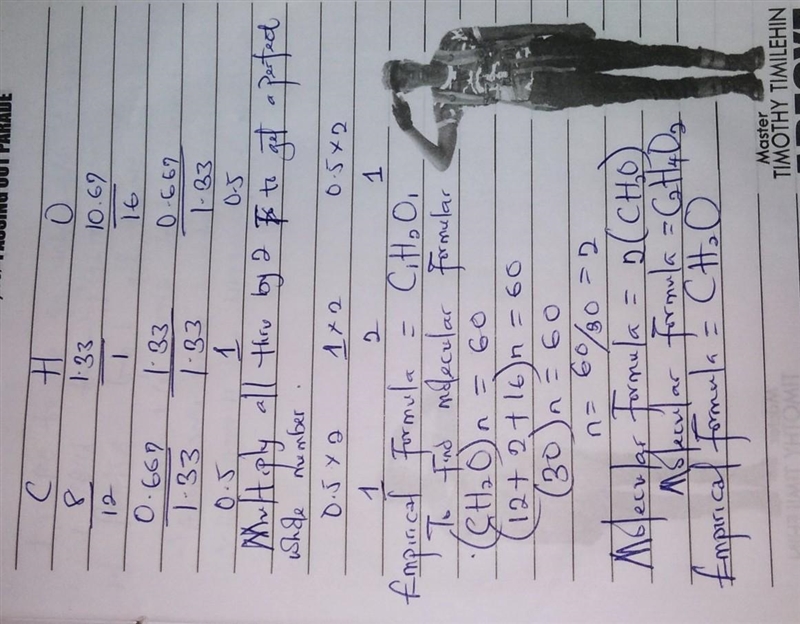 PASSING OUT PARADE
C H O
8 1.33 10.67
12 1 16
0.667 1.33 0.667
1.33 1.33 1.33
0.5 1 0.5
Multiply all thru by 2 to get a perfect
whole number.
0.5 x 2 1 x 2 0.5 x 2
1 2 1
Empirical Formula = C1H2O1
To find molecular formular
(CH2O)n = 60
(12 + 2 + 16)n = 60
(30)n = 60
n = 60/30 = 2
Molecular formula = 2(CH2O)
Molecular formula = C2H4O2
Empirical formula = CH2O
Master
TIMOTHY TIMILEHIN